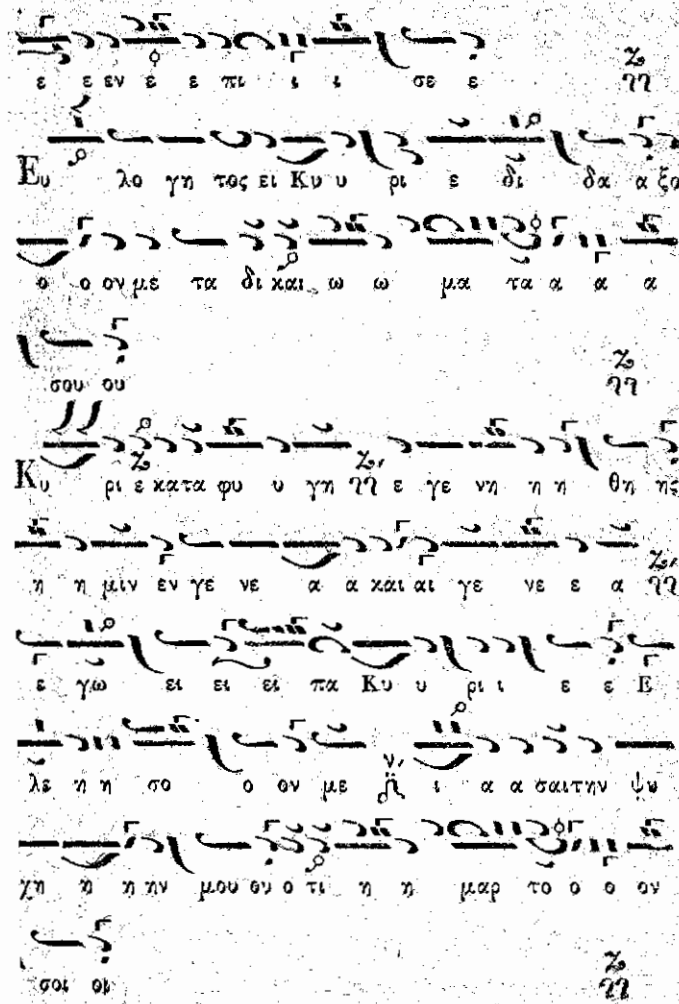 ε ε εν ε ε πι ι ι σε ε
Ευ λο γη τος ει Κυ υ ρι ε δι δα α ξο
ο ο ον με τα δι και ω ω μα τα α α α
σου ου
Κυ ρι ε κατα φυ υ γη ε γε νη η η θη ης
η η μιν εν γε νε α α και αι γε νε ε α
ε γω ει ει ει πα Κυ υ ρι ι ε ε Ε
λε η η σο ο ον με ι α α σαι την ψυ
χη η η ην μου ου ο τι η η μαρ το ο ο ον
σοι οι